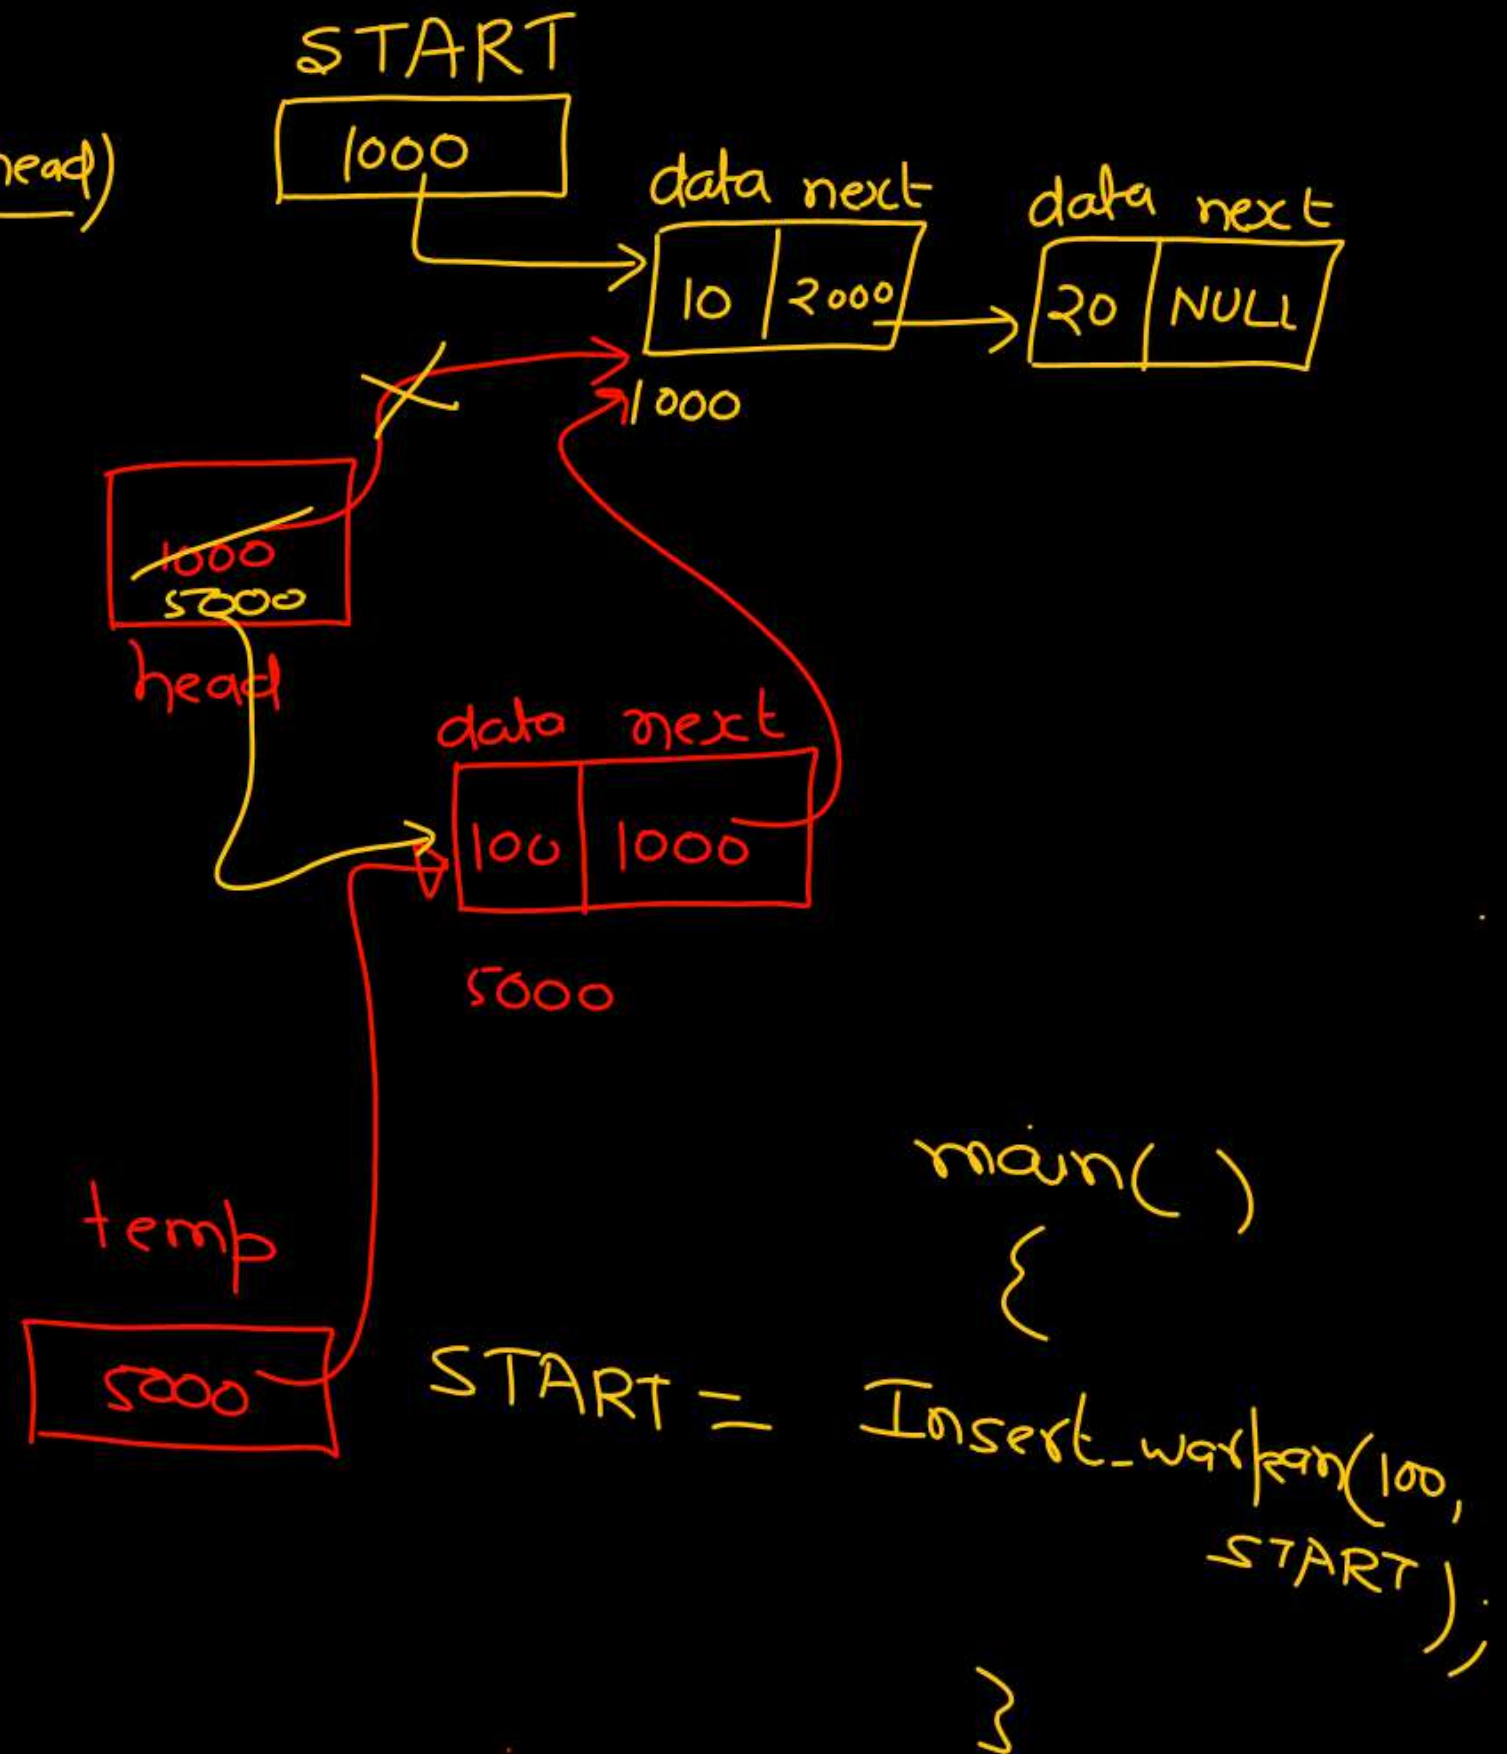 START
head)
1000
data next
data next
10 2000
20 NULL
1000
1000
5000
head
data next
100 1000
5000
main( )
{
temp
5000
START = Insert_warkan(100,
START);
}